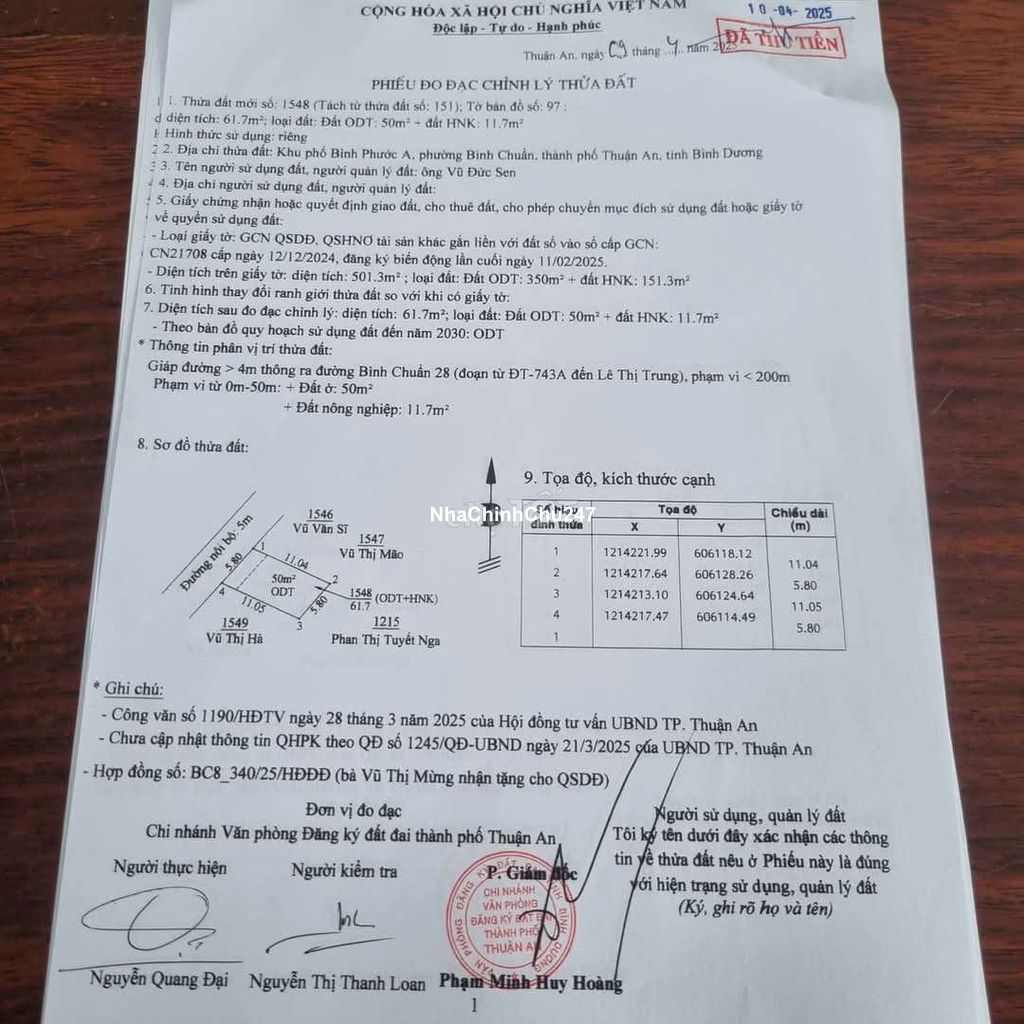 CỘNG HÒA XÃ HỘI CHỦ NGHĨA VIỆT NAM
Độc lập - Tự do - Hạnh phúc
10-04-2025
ĐÃ THU TIỀN
Thuận An, ngày 09 tháng 4 năm 2025
PHIẾU ĐO ĐẠC CHỈNH LÝ THỬA ĐẤT
1. Thửa đất mới số: 1548 (Tách từ thửa đất số: 151); Tờ bản đồ số: 97 ;
diện tích: 61.7m²; loại đất: Đất ODT: 50m² + đất HNK: 11.7m²
Hình thức sử dụng: riêng
2. Địa chỉ thửa đất: Khu phố Bình Phước A, phường Bình Chuẩn, thành phố Thuận An, tỉnh Bình Dương
3. Tên người sử dụng đất, người quản lý đất: ông Vũ Đức Sen
4. Địa chỉ người sử dụng đất, người quản lý đất:
5. Giấy chứng nhận hoặc quyết định giao đất, cho thuê đất, cho phép chuyển mục đích sử dụng đất hoặc giấy tờ
về quyền sử dụng đất:
- Loại giấy tờ: GCN QSDĐ, QSHNƠ tài sản khác gắn liền với đất số vào sổ cấp GCN:
CN21708 cấp ngày 12/12/2024, đăng ký biến động lần cuối ngày 11/02/2025.
- Diện tích trên giấy tờ: diện tích: 501.3m² ; loại đất: Đất ODT: 350m² + đất HNK: 151.3m²
6. Tình hình thay đổi ranh giới thửa đất so với khi có giấy tờ:
7. Diện tích sau đo đạc chỉnh lý: diện tích: 61.7m²; loại đất: Đất ODT: 50m² + đất HNK: 11.7m²
- Theo bản đồ quy hoạch sử dụng đất đến năm 2030: ODT
* Thông tin phân vị trí thửa đất:
Giáp đường > 4m thông ra đường Bình Chuẩn 28 (đoạn từ ĐT-743A đến Lê Thị Trung), phạm vi < 200m
Phạm vi từ 0m-50m: + Đất ở: 50m²
+ Đất nông nghiệp: 11.7m²
8. Sơ đồ thửa đất:
Đường nội bộ: 5m
1546
Vũ Văn Sĩ
1547
Vũ Thị Mão
1
5.80
11.04
50m²
ODT
2
4
11.05
5.80
3
1548 (ODT+HNK)
61.7
1549
Vũ Thị Hà
1215
Phan Thị Tuyết Nga
B
NhaChinhChu247
9. Tọa độ, kích thước cạnh
Số hiệu đỉnh thửa Tọa độ Chiều dài (m)
X Y
1 1214221.99 606118.12
11.04
2 1214217.64 606128.26
5.80
3 1214213.10 606124.64
11.05
4 1214217.47 606114.49
5.80
1
* Ghi chú:
- Công văn số 1190/HĐTV ngày 28 tháng 3 năm 2025 của Hội đồng tư vấn UBND TP. Thuận An
- Chưa cập nhật thông tin QHPK theo QĐ số 1245/QĐ-UBND ngày 21/3/2025 của UBND TP. Thuận An
- Hợp đồng số: BC8_340/25/HĐĐĐ (bà Vũ Thị Mừng nhận tặng cho QSDĐ)
Đơn vị đo đạc
Chi nhánh Văn phòng Đăng ký đất đai thành phố Thuận An
Người thực hiện
Người kiểm tra
P. Giám đốc
CHI NHÁNH
VĂN PHÒNG
ĐĂNG KÝ ĐẤT ĐAI
THÀNH PHỐ
THUẬN AN
Nguyễn Quang Đại
Nguyễn Thị Thanh Loan
Phạm Minh Huy Hoàng
Người sử dụng, quản lý đất
Tôi ký tên dưới đây xác nhận các thông
tin về thửa đất nêu ở Phiếu này là đúng
với hiện trạng sử dụng, quản lý đất
(Ký, ghi rõ họ và tên)
1